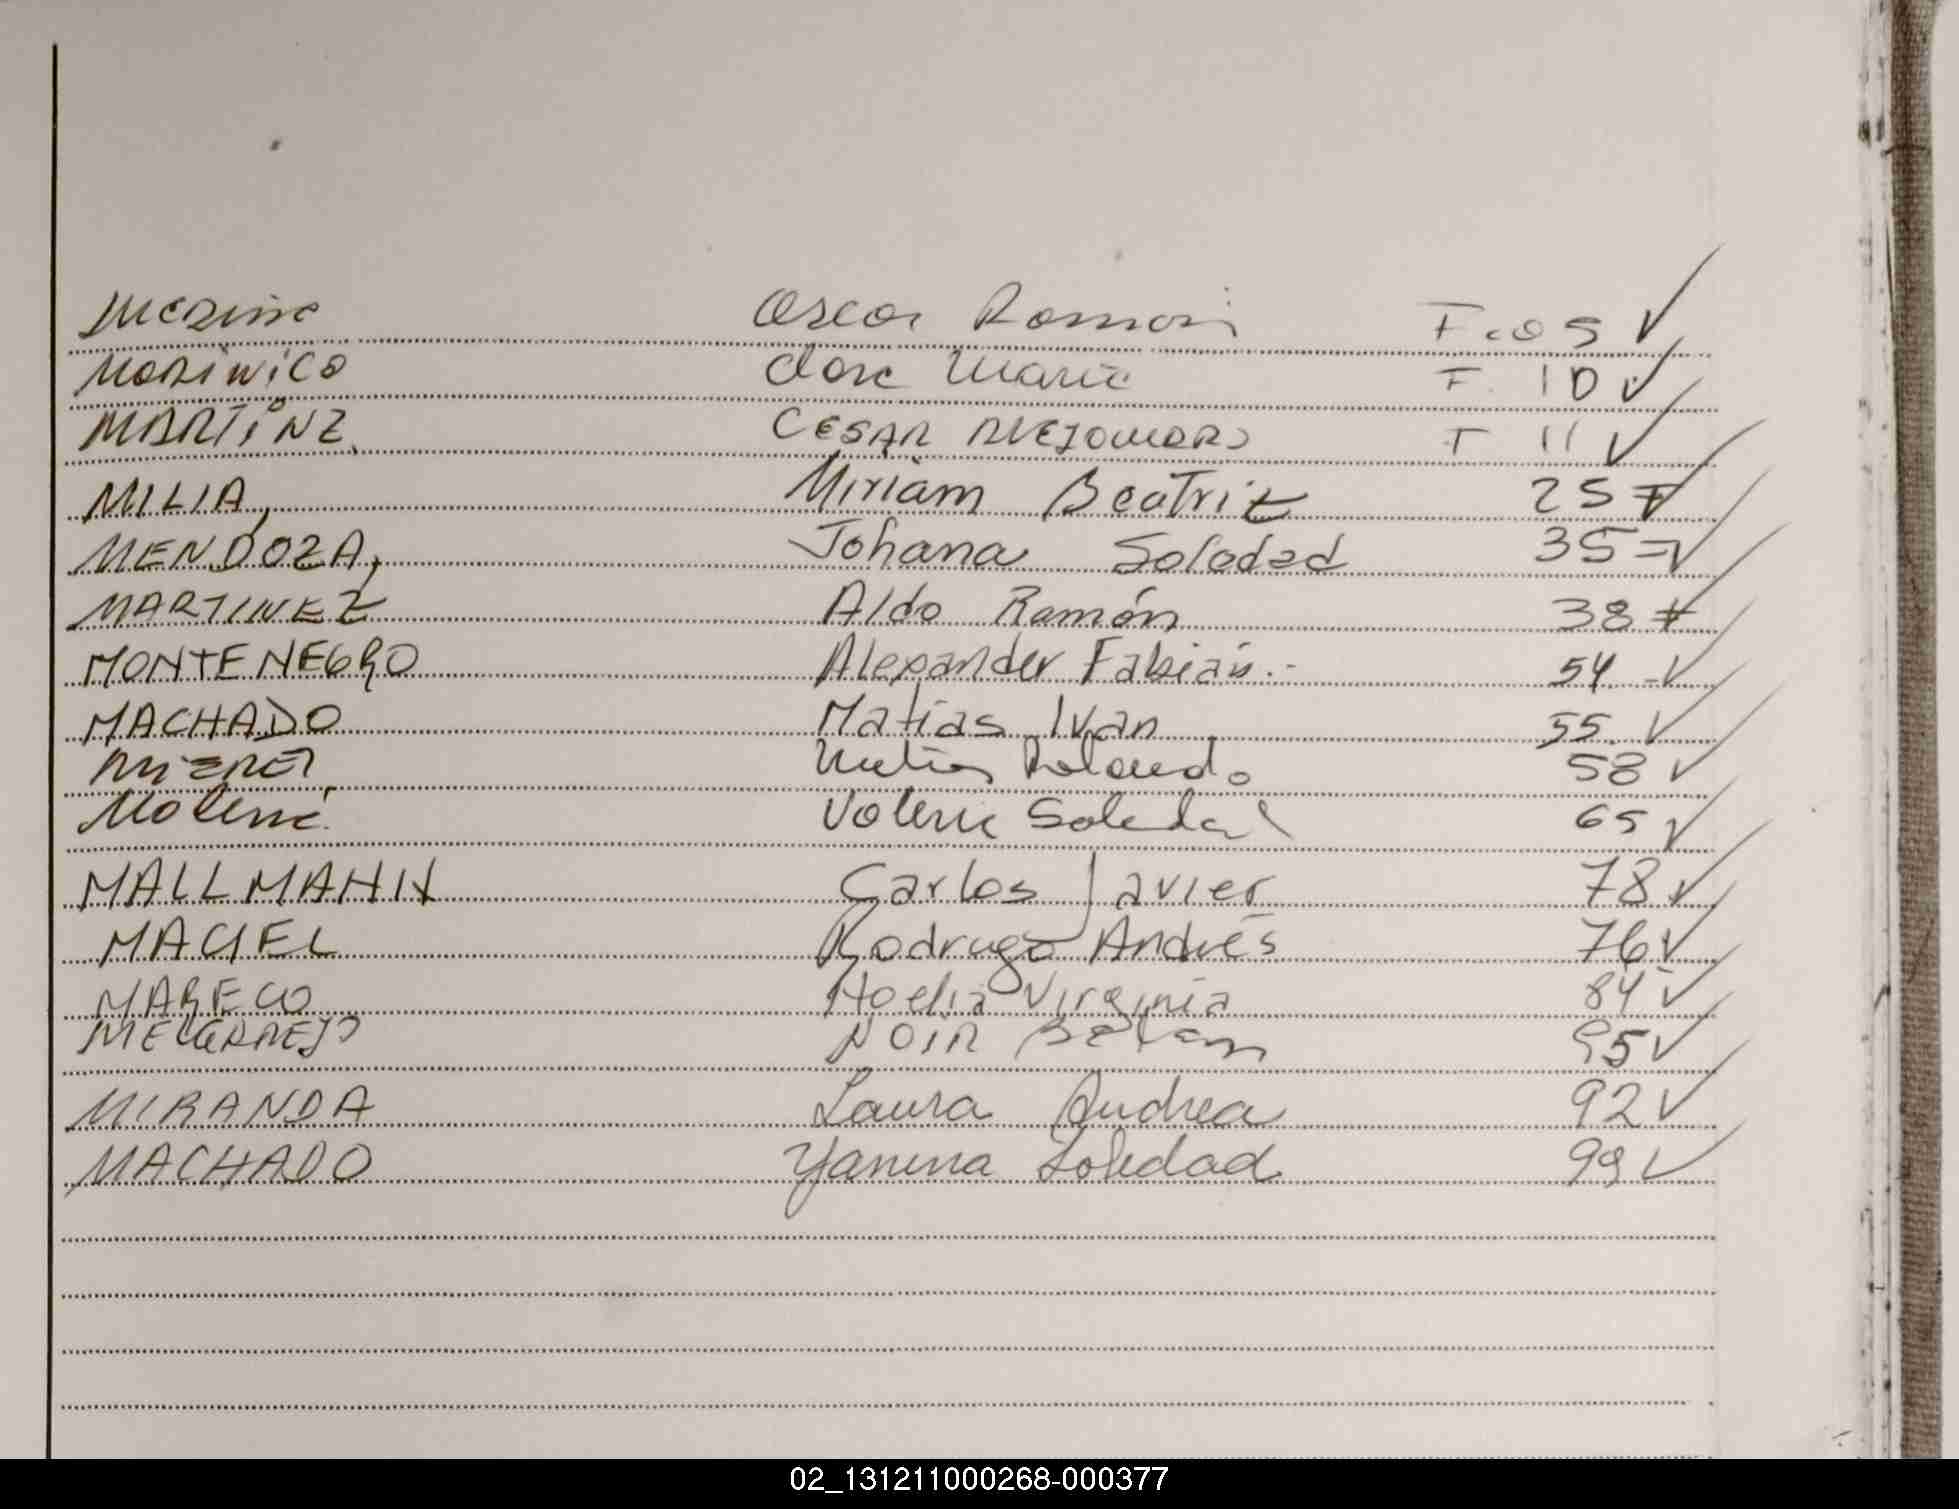 Medina Oscar Ramon F. 05 ✓
MORiNiCO Jose Maria F. 10 ✓
MARTiNZ. CESAR ALEJANDRO F 11 ✓
MILIA, Miriam Beatriz 25 ✓
MENDOZA, Johana Soledad 35 = ✓
MARTINEZ Aldo Ramón 38 ✓
MONTENEGRO Alexander Fabián.- 54 - ✓
MACHADO Matias Ivan 55. ✓
Rolando 58 ✓
Molina Valeria Soledad 65 ✓
MALLMANN Carlos Javier 78 ✓
MACIEL Rodrigo Andrés 76 ✓
MARECO Noelia Virginia 84 ✓
MELGAREJO NOIR Belem 95 ✓
MIRANDA Laura Andrea 92 ✓
MACHADO Yanina Soledad 99 ✓
02_131211000268-000377